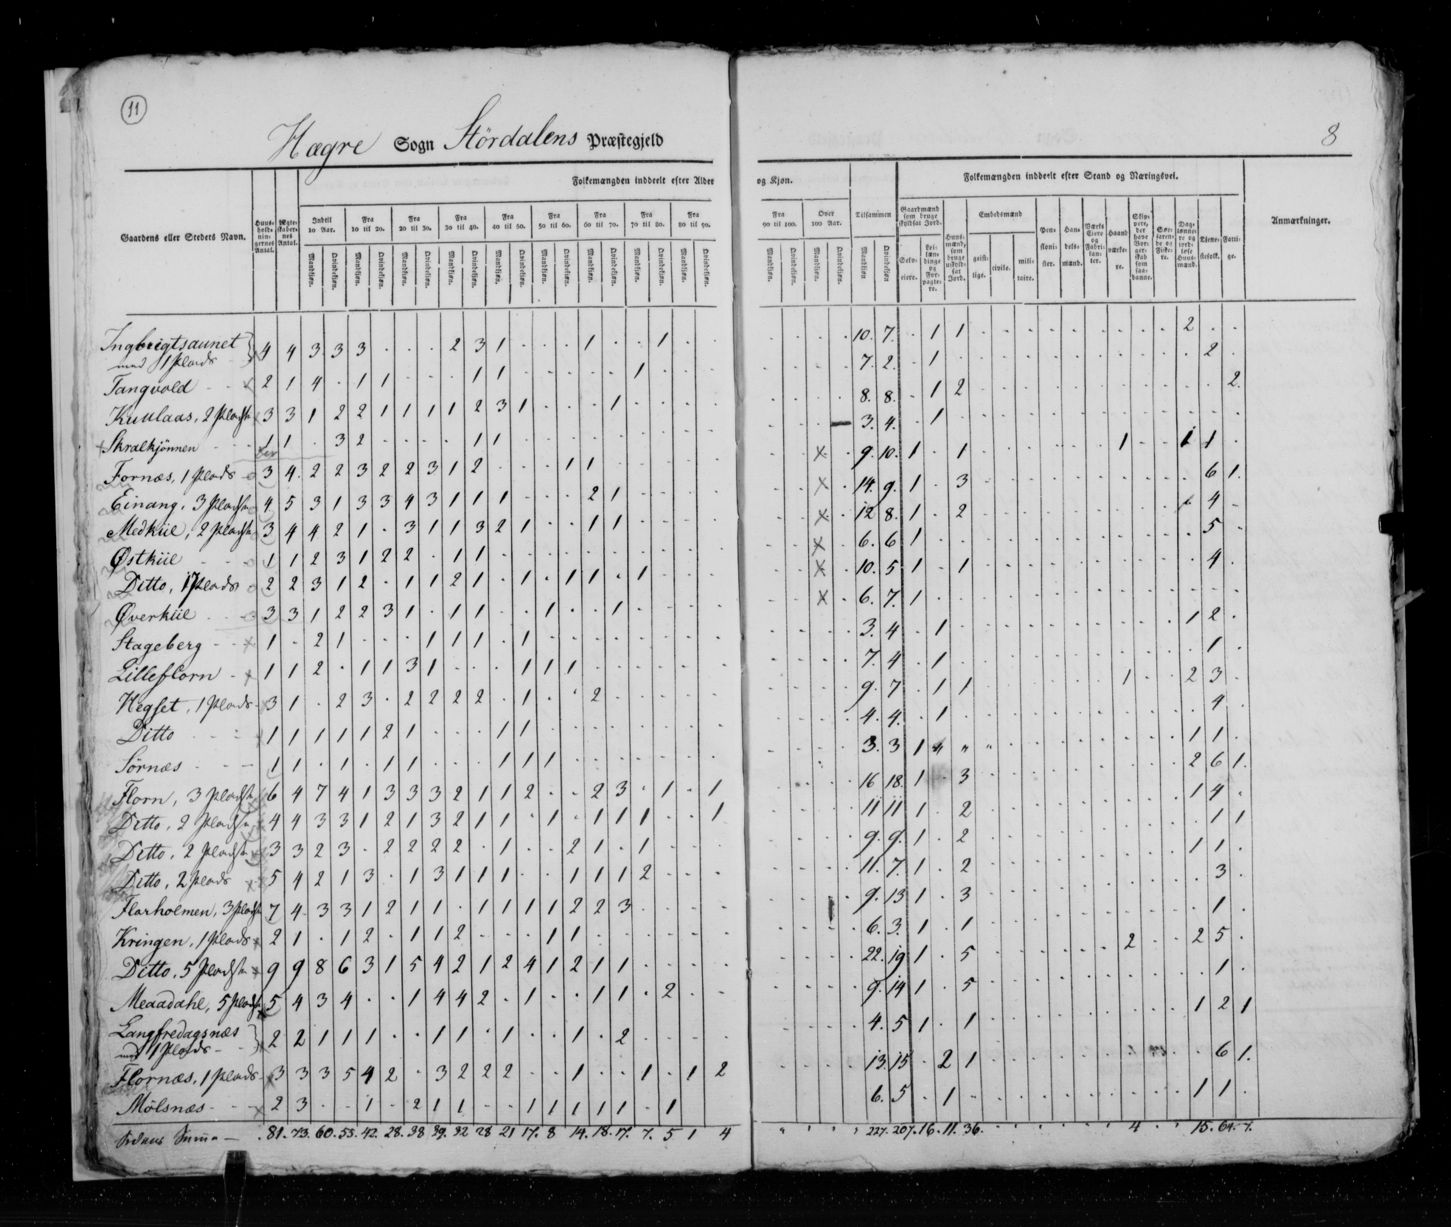 11
8
Hægre Sogn Stördalens Præstegjeld
Folkemængden inddeelt efter Alder
og Kjøn.
Folkemængden inddeelt efter Stand og Næringsvei.
Gaardens eller Stedets Navn.
Anmærkninger.
Indtil 10 Aar.
Fra 10 til 20.
Fra 20 til 30.
Fra 30 til 40.
Fra 40 til 50.
Fra 50 til 60.
Fra 60 til 70.
Fra 70 til 80.
Fra 80 til 90.
Fra 90 til 100.
Over 100 Aar.
Tilsammen
Embedsmænd
Mandkjøn. Qvindekjøn.
Ingbrigtsaunet
med 1 Plads 4 4 3 3 3 2 3 1 1 1 10. 7. 1 1 2
Tangvold 2 1 4 1 1 1 1 1 7. 2. 1 2
Kuulaas, 2 Pladse 3 3 1 2 2 1 1 1 1 2 3 1 1 8. 8. 1 2 2
Skralkjönnen 1 1 3 2 1 1 3. 4. 1
Fornæs, 1 Plads 3 4 2 2 3 2 2 3 1 2 1 1 9. 10. 1 1 1 1 1
Einang, 3 Pladse 4 5 3 1 3 3 4 3 1 1 1 2 1 14. 9. 1 3 6 1
Medkiil, 2 Pladse 3 4 4 2 1 3 1 1 3 2 1 1 1 12 8. 1 2 4
Østkiil 1 1 2 3 1 2 2 1 1 6. 6 1 5
Ditto, 1 Plads 2 2 3 1 2 1 1 2 1 1 1 1 1 10. 5 1 1 4
Øverkiil 3 3 1 2 2 3 1 1 1 1 1 6. 7. 1
Stageberg 1 2 1 1 1 1 1 3. 4 1 1 2
Lilleflorn 1 1 2 1 1 3 1 1 1 1 7. 4 1 1
Hegset, 1 Plads 3 1 2 3 2 2 2 2 1 2 9. 7 1 1 1 2 3
Ditto 1 1 1 1 1 2 1 1 1 4. 4. 1 4
Sörnæs 1 1 1 1 1 1 1 1 3. 3 1 1 1
Florn, 3 Pladse 6 4 7 4 1 3 3 3 2 1 1 2 2 3 1 1 16 18. 1 3 2 6 1
Ditto, 2 Pladse 4 4 3 3 1 2 1 3 2 1 1 1 1 1 1 1 11 11 1 2 1 4
Ditto, 2 Pladse 3 3 2 3 2 2 2 2 1 2 1 1 9. 9. 1 2 1 1
Ditto, 2 Plads 5 4 2 1 3 1 3 1 1 1 1 1 1 2 11. 7. 1 2 1 1
Florholmen, 3 Pladse 7 4 3 3 1 2 1 1 1 1 1 1 2 2 3 9. 13 1 3 3
Kringen, 1 Plads 2 1 1 2 1 1 2 1 1 6. 3. 1 1 1
Ditto, 5 Pladse 9 9 8 6 3 1 5 4 2 1 2 4 1 2 1 1 22. 19 1 5 2 2 5
Meaadahl, 5 Pladse 5 4 3 4 1 4 4 2 1 1 1 2 9. 14 1 5 1
Langfredagsnæs
med 1 Plads 2 2 1 1 1 1 1 1 1 2 4. 5 1 1 1 2 1
Flornæs, 1 Plads 3 3 3 5 4 2 3 2 2 2 1 1 1 2 13. 15 2 1 6 1.
Mölsnæs 2 3 1 2 1 1 1 1 1 1 1 1 6. 5 1 1 1
Sidens Summa 81. 73. 60. 53. 42. 28. 38. 39. 32 28 21 17. 8 14. 18. 17. 7. 5 1 4 227. 207. 16. 11. 36. 4 15. 64. 7.